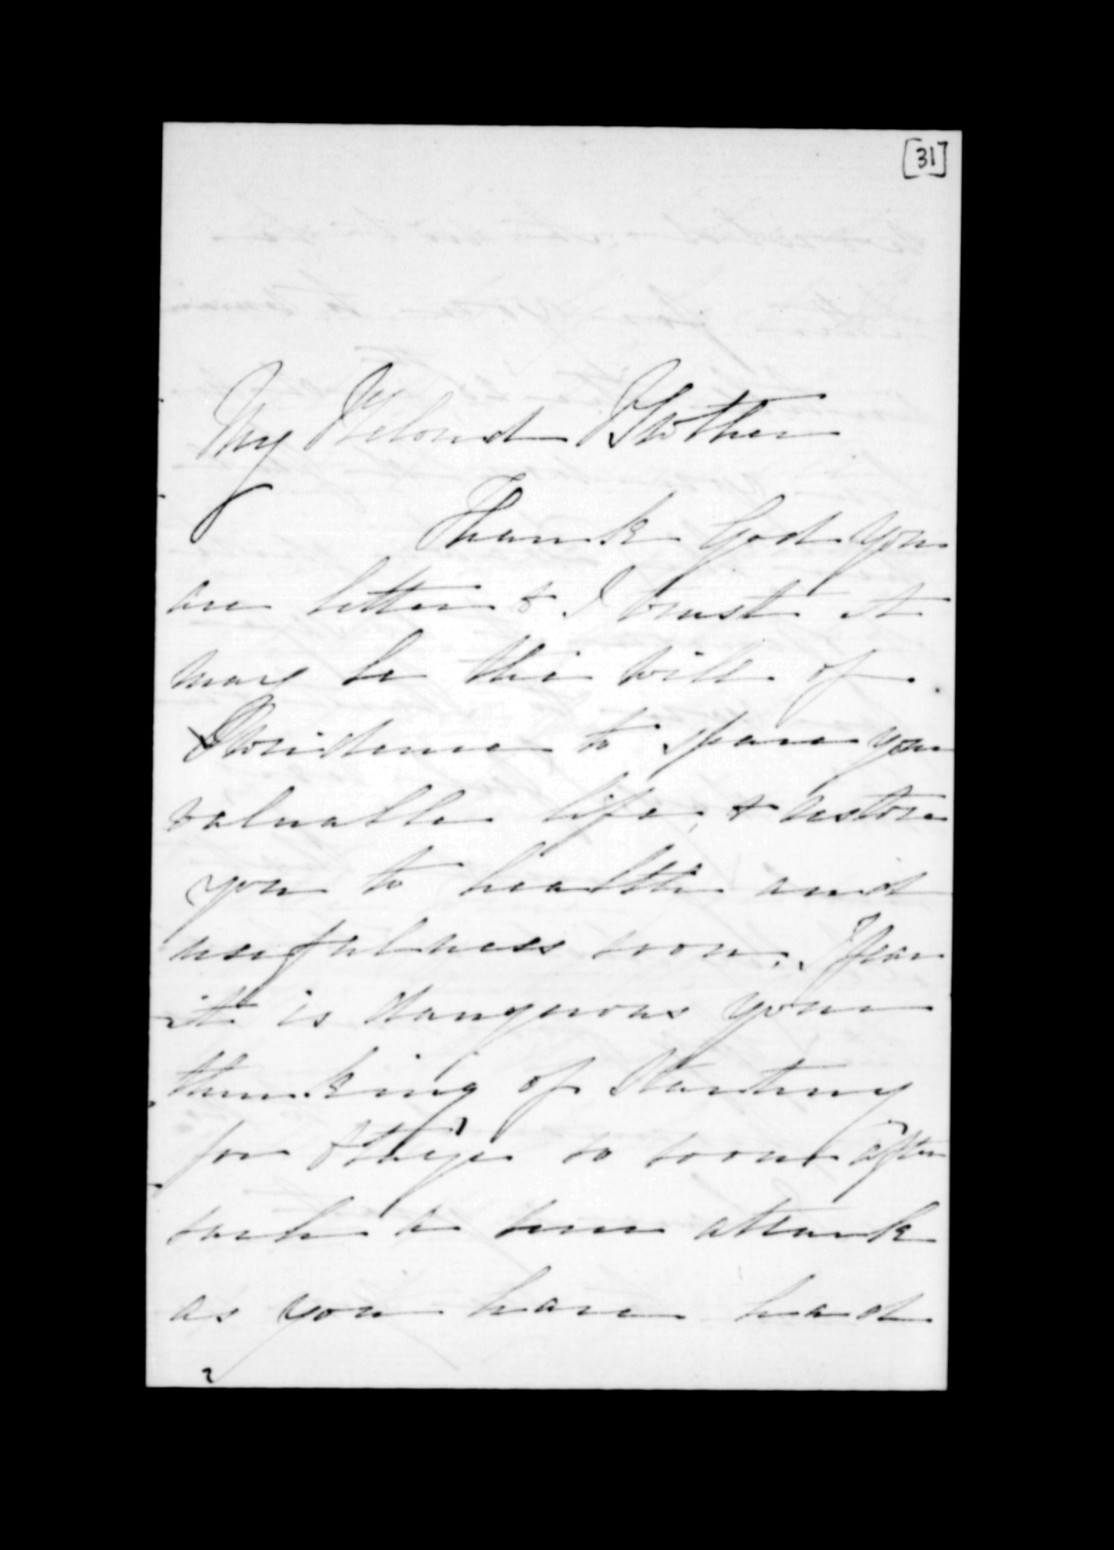 [31]
My Beloved Brother
Thank God you
are better & I trust it
may be the will of
Providence to spare your
valuable life, & restore
you to health and
usefulness soon. I fear
it is dangerous your
thinking of Starting
for Otago so soon after
such a severe attack
as you have had